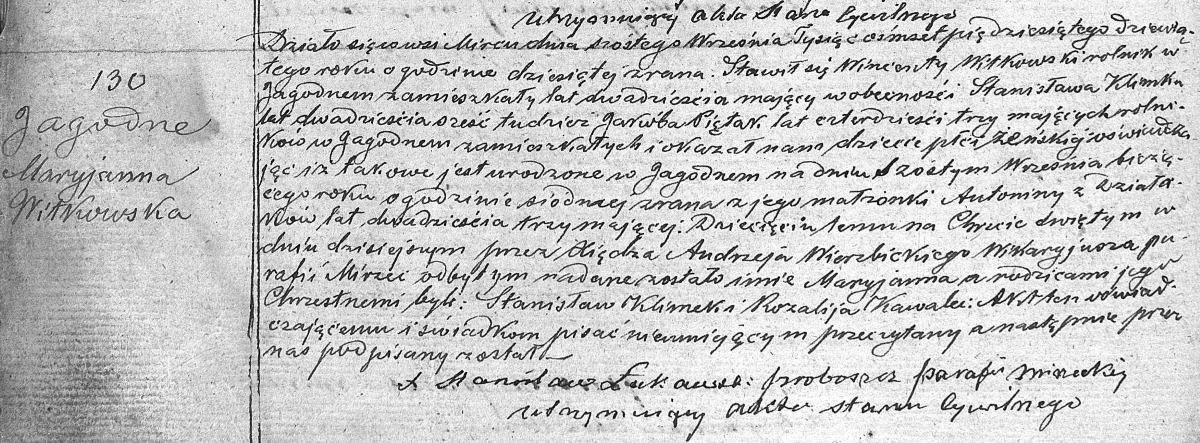 utrzymujący akta Stanu Cywilnego
130
Jagodne
Maryjanna
Witkowska
Działo się we wsi Mircu dnia szóstego Września Tysiąc ośmset pięćdziesiątego dziewią-
tego roku o godzinie dziesiątej zrana. Stawił się Wincenty Witkowski rolnik w
Jagodnem zamieszkały lat dwadzieścia mający w obecności Stanisława Klimka
lat dwadzieścia sześć tudzież Jakóba Piętak lat czterdzieści trzy mających rolni-
ków w Jagodnem zamieszkałych i okazał nam dziecie płci żeńskiej oświadcza
jąc iż takowe jest urodzone w Jagodnem na dniu szóstym Września bieżą-
cego roku o godzinie siódmej zrana z jego małżonki Antoniny z Działa-
ków lat dwadzieścia trzy mającej. Dziecięciu temu na Chrzcie Świętym w
dniu dzisiejszym przez Xiędza Andrzeja Wierzbickiego Wikaryjusza pa-
rafii Mirzec odbytym nadane zostało imie Maryjanna a rodzicami jego
Chrzestnemi byli: Stanisław Klimek i Rozalija Kawalec. Akt ten oświad-
czającemu i świadkom pisać nieumiejącym przeczytany a następnie przez
nas podpisany został
X Stanisław proboszcz parafii Mirecki
utrzymujący akta stanu cywilnego